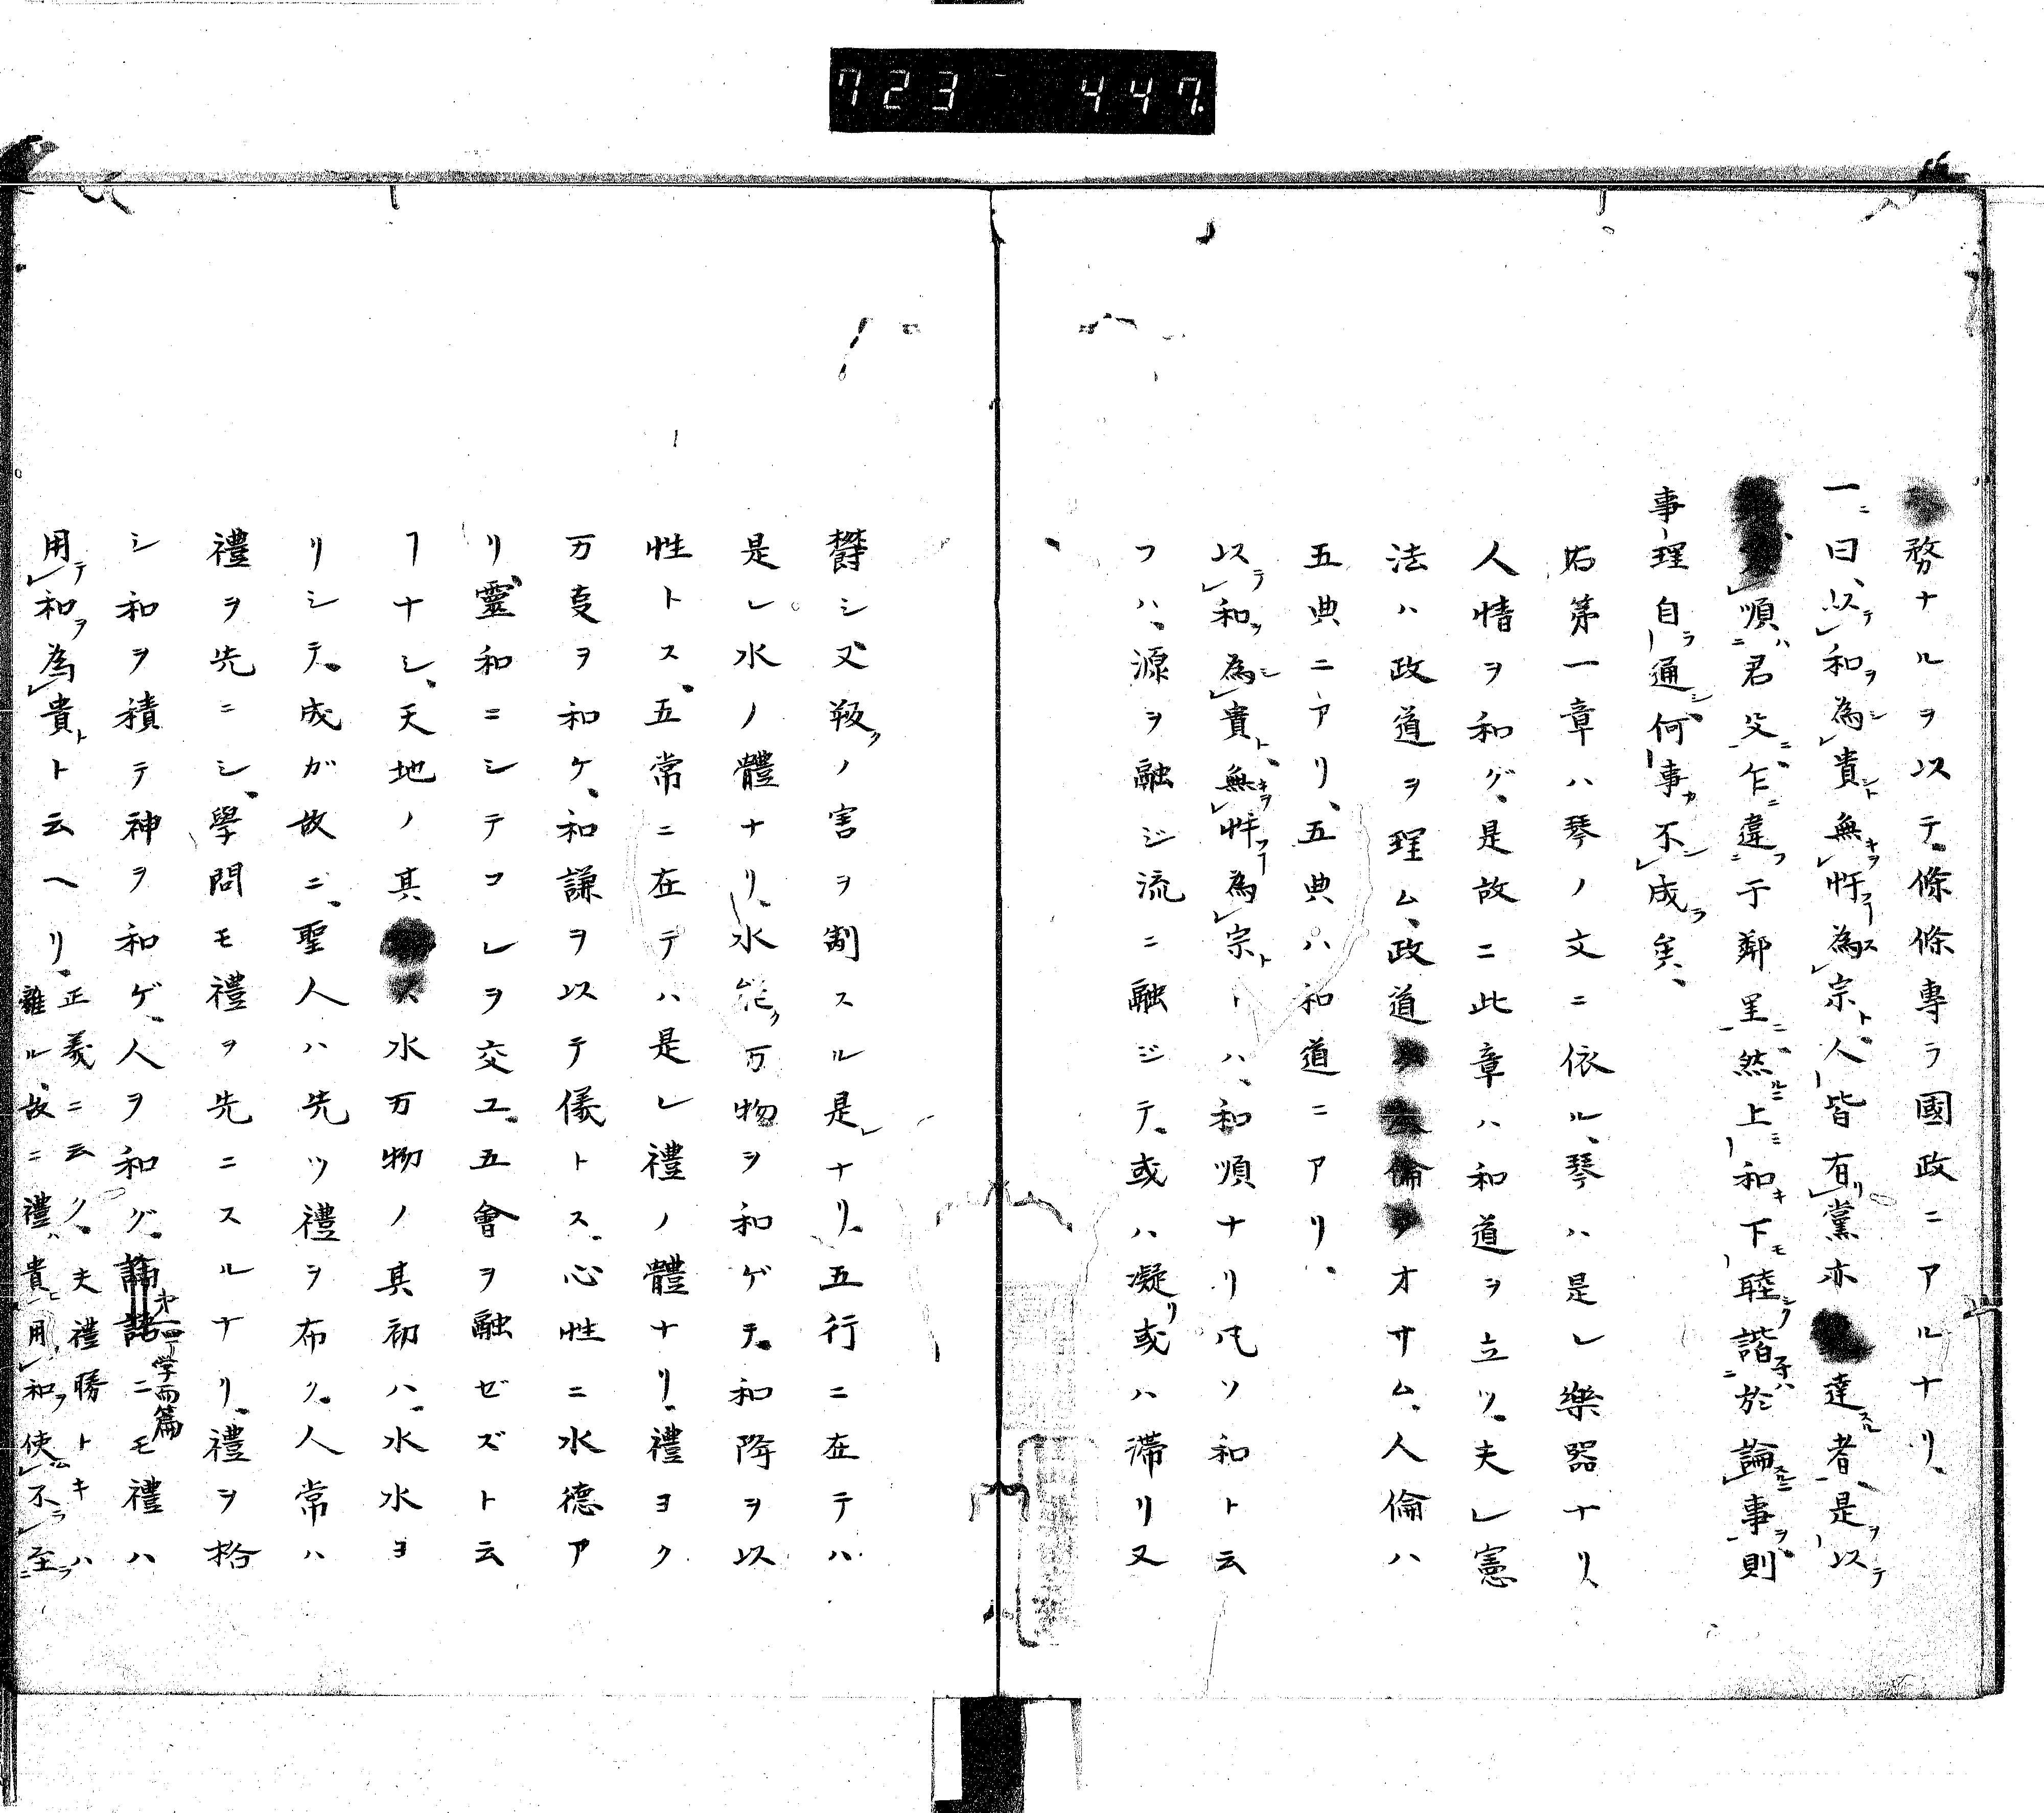 723 447.
務ナルヲ以テ、條條專ラ國政ニアルナリ、
一曰、以和為貴無忤為宗、人皆有黨亦達者、是以
順君父乍違于鄰里、然上和下睦諧於論事、則
事理自通何事不成矣、
右第一章ハ琴ノ文ニ依ル、琴ハ是レ樂器ナリ、
人情ヲ和グ、是故ニ此章ハ和道ヲ立ツ、夫レ憲
法ハ政道ヲ理ム、政道倫ヲオサム、人倫ハ
五典ニアリ、五典ハ和道ニアリ、
以和為貴、無忤為宗トハ、和順ナリ凡ソ和ト云
フハ、源ヲ融ジ流ニ融ジテ、或ハ凝リ或ハ滯リ又
欝シ又叛ノ害ヲ剬スル是ナリ、五行ニ在テハ
是レ水ノ體ナリ、水能ク万物ヲ和ゲテ、和降ヲ以
性トス、五常ニ在テハ是レ禮ノ體ナリ、禮ヨク
万変ヲ和ケ、和謙ヲ以テ儀トス、心性ニ水德ア
リ、靈和ニシテコレヲ交ユ、五會ヲ融ゼズト云
ヿナシ、天地ノ其ス水万物ノ其初ハ、水水ヨ
リシテ、成ガ故ニ、聖人ハ先ツ禮ヲ布ク、人常ハ
禮ヲ先ニシ、學問モ禮ヲ先ニスルナリ、禮ヲ拾
シ和ヲ積テ神ヲ和ゲ、人ヲ和グ、論語ニモ禮ハ
学而篇
用和為貴ト云ヘリ、
正義ニ云ク、夫禮勝トキハ
離ル、故ニ禮貴用和使不至